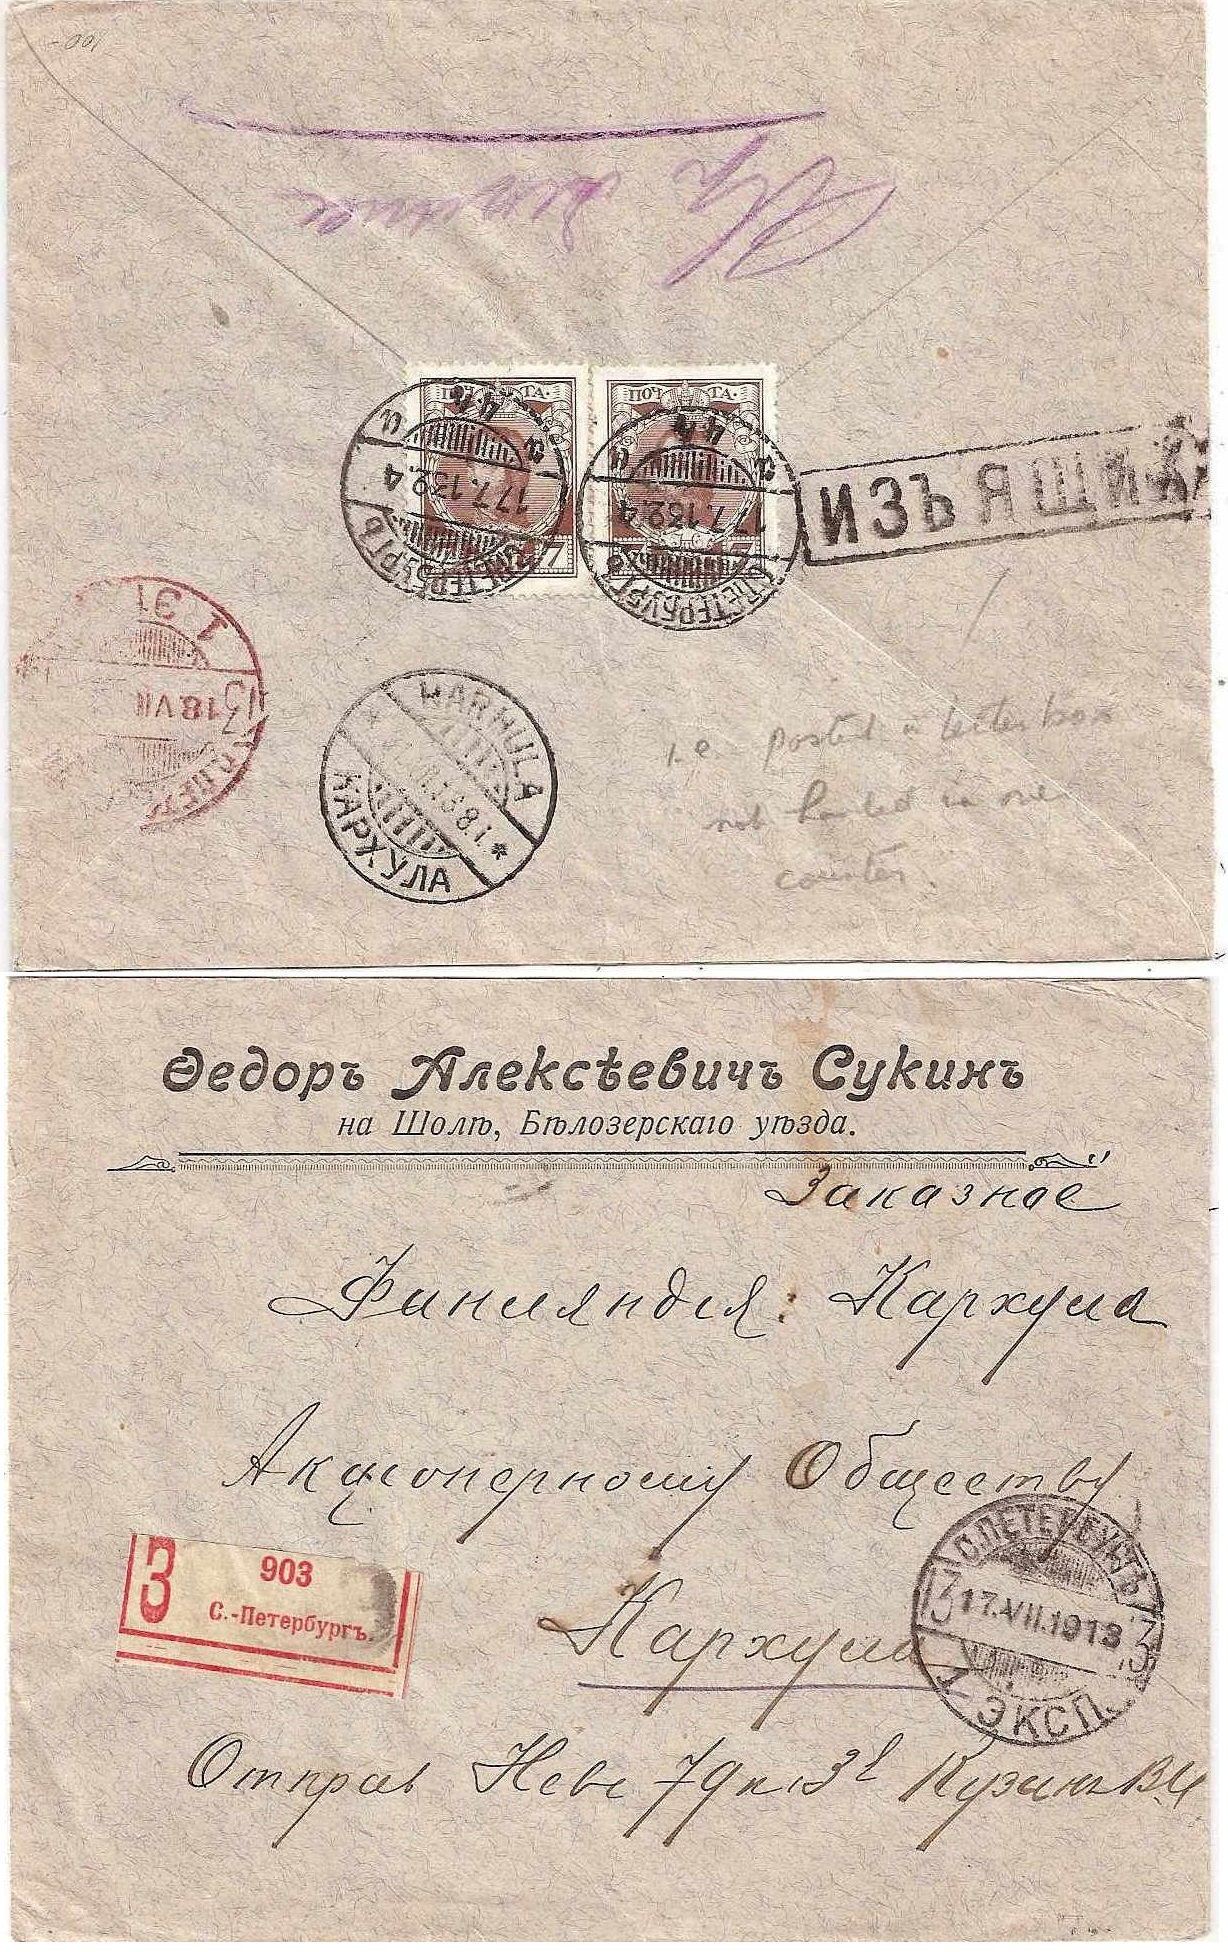 ПОЧТА.
ПОЧТА.
7
7
С.ПЕТЕРБУРГЪ
17.7.13 2.4
С.ПЕТЕРБУРГЪ
17.7.13 2.4
ИЗЪ ЯЩИКА
1 ЭК
18 VII
HARHULA
КАРХУЛА
i.e. posted in letter box
not handed in over
counter.
Ѳедоръ Алексѣевичъ Сукинъ
на Шолѣ, Бѣлозерскаго уѣзда.
Заказное
Финляндія: Кархула
Акціонерному Обществу
Кархула
3
903
С.-Петербургъ.
С.ПЕТЕРБУРГЪ
17.VII.1913
1 ЭКСП.
Отправ Невс 79 к 3